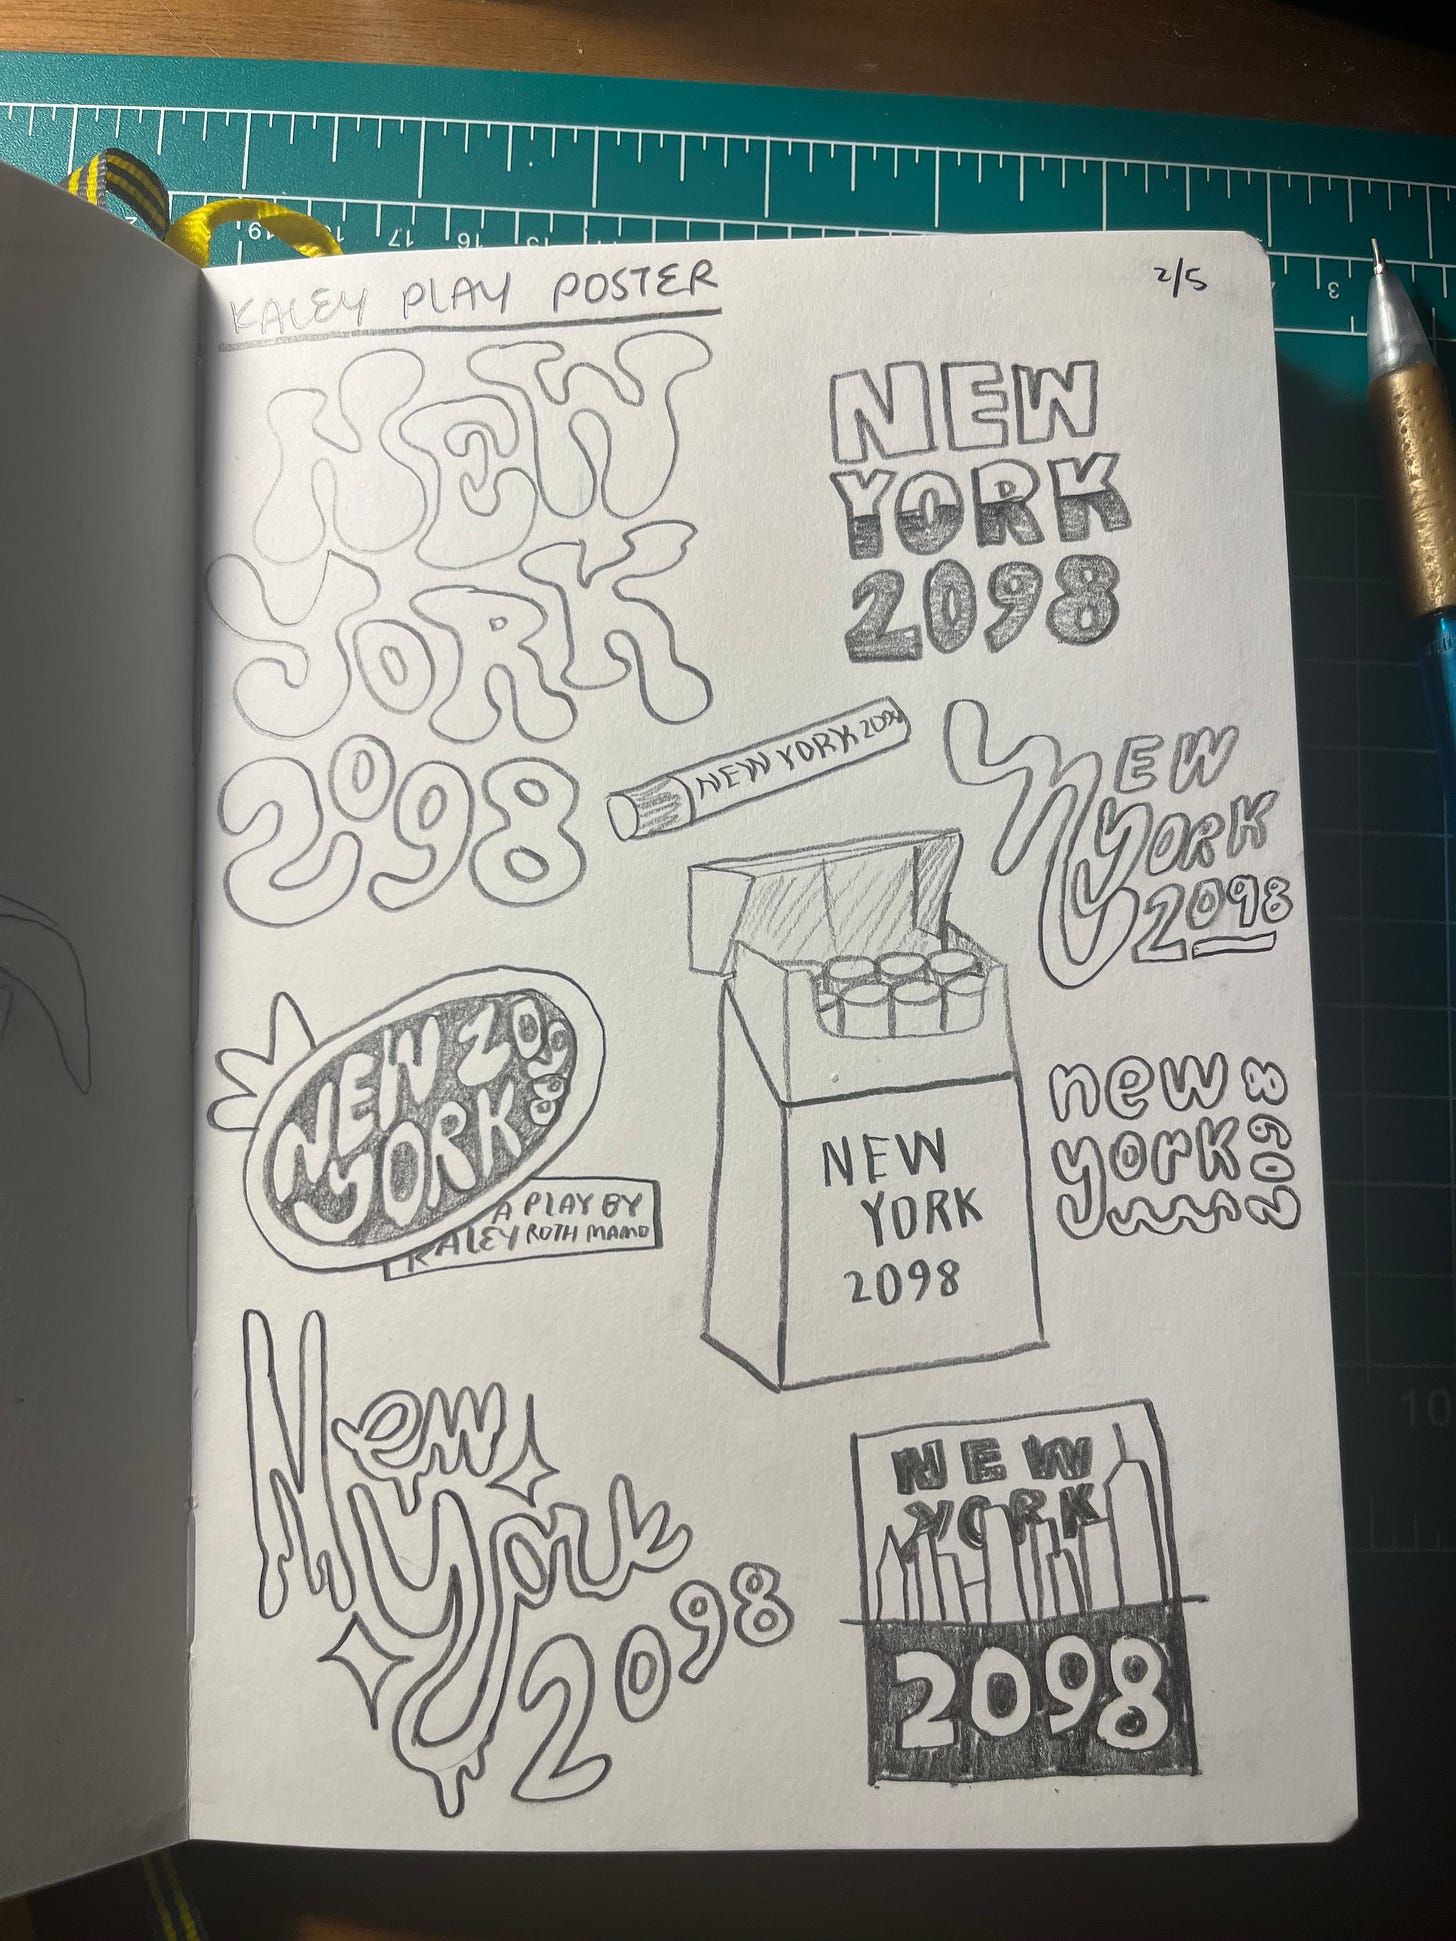 KALEY PLAY POSTER
2/5
NEW
YORK
2098
NEW
YORK
2098
NEW YORK 2098
NEW
YORK
2098
NEW 2098
YORK
A PLAY BY
KALEY ROTH MAMO
NEW
YORK
2098
new
york
2098
New
York
2098
NEW
YORK
2098
19
17
16
15
3
10